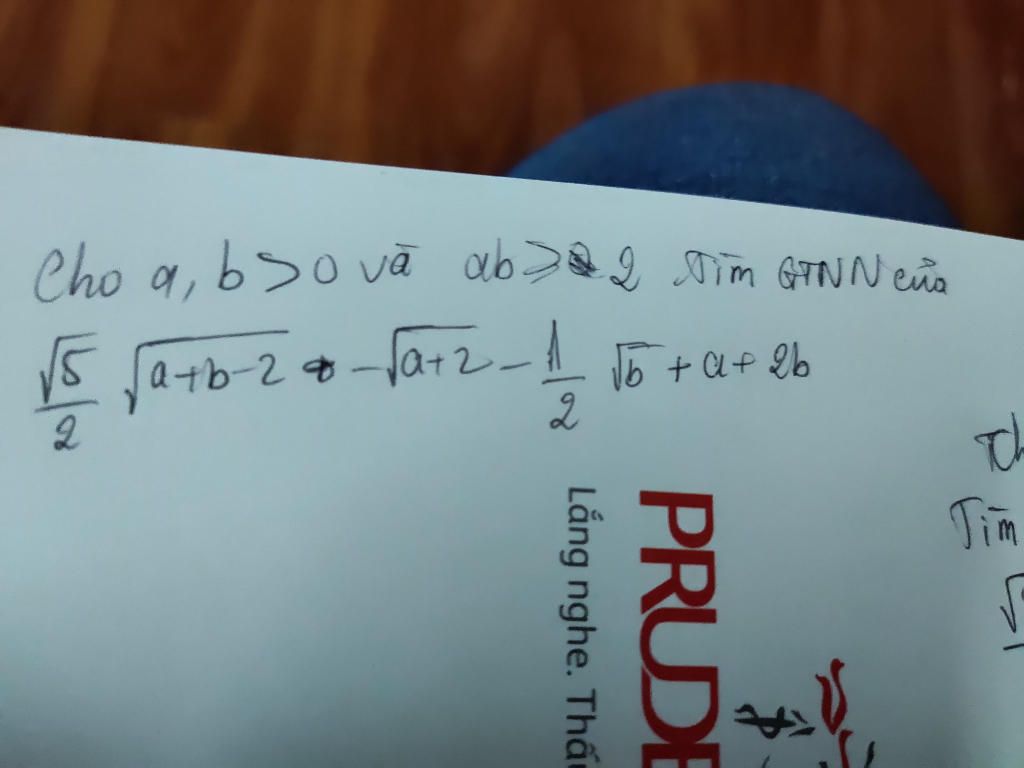 Cho a, b > 0 và ab ≥ 2 Tìm GTNN của
√5/2 √(a+b-2) - √(a+2) - 1/2 √b + a + 2b
Tìm
PRUDE
Lắng nghe. Thấ